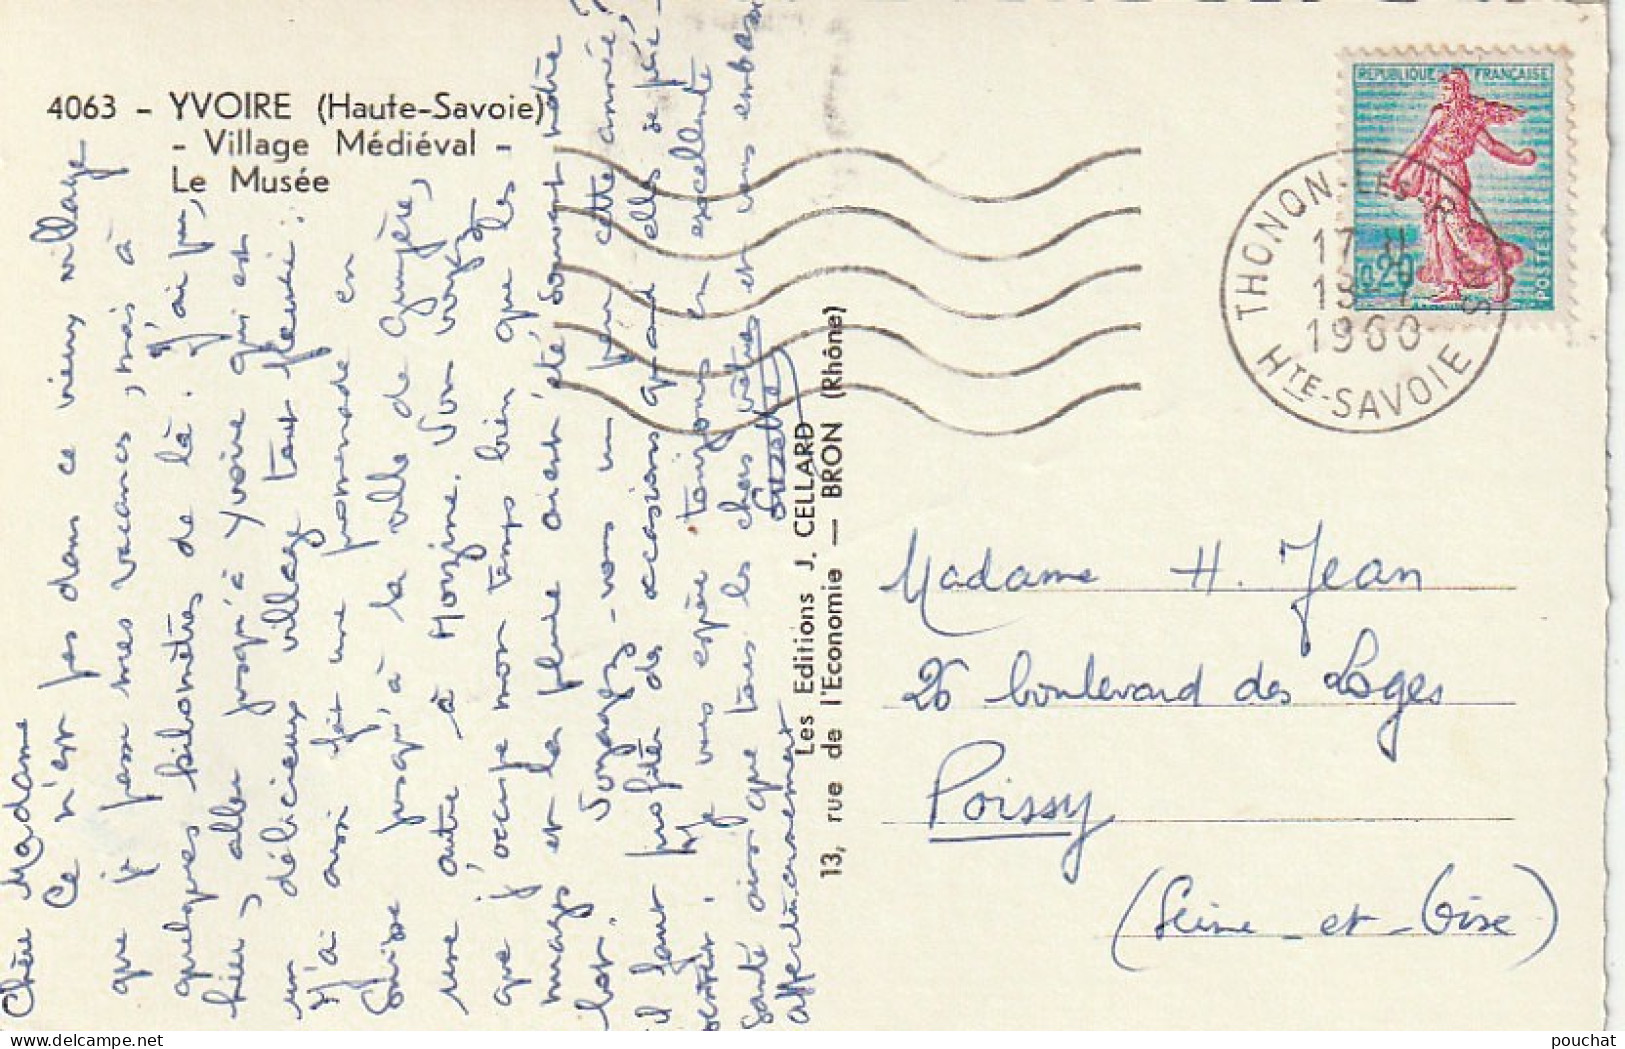 4063 - YVOIRE (Haute-Savoie)
- Village Médiéval -
Le Musée
Chère Madame
Ce n'est pas dans ce vieux village
que je passe mes vacances, mais à
quelques kilomètres de là. J'ai pu,
hier, aller jusqu'à Yvoire qui est
un délicieux village tout fleuri.
J'ai aussi fait une promenade en
Suisse jusqu'à la ville de Gruyère,
une autre à Morzine. Vous voyez
que j'occupe mon temps bien que les
nuages et la pluie aient été souvent notre
lot. Voyagez-vous un peu cette année?
il faut profiter des occasions quand elles se
Je vous espère toujours en excellente
santé ainsi que tous les chers vôtres et vous embrasse
affectueusement
Les Editions J. CELLARD
13, rue de l'Economie — BRON (Rhône)
REPUBLIQUE FRANÇAISE
0,20
POSTES
THONON-LES-BAINS
17 H
1960
HTE-SAVOIE
Madame H. Jean
26 boulevard des Loges
Poissy
(Seine-et-Oise)
pouchat